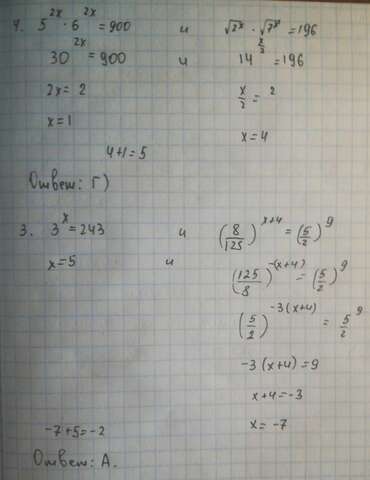 4. 5^{2x} · 6^{2x} = 900 и √2^x · √7^x = 196
30^{2x} = 900 и 14^{x/2} = 196
2x = 2 x/2 = 2
x = 1 x = 4
4+1=5
Ответ: Г)
3. 3^x = 243 и (8/125)^{x+4} = (5/2)^9
x = 5 и (125/8)^{-(x+4)} = (5/2)^9
(5/2)^{-3(x+4)} = 5/2^9
-3(x+4) = 9
x+4 = -3
-7+5=-2 x = -7
Ответ: А.